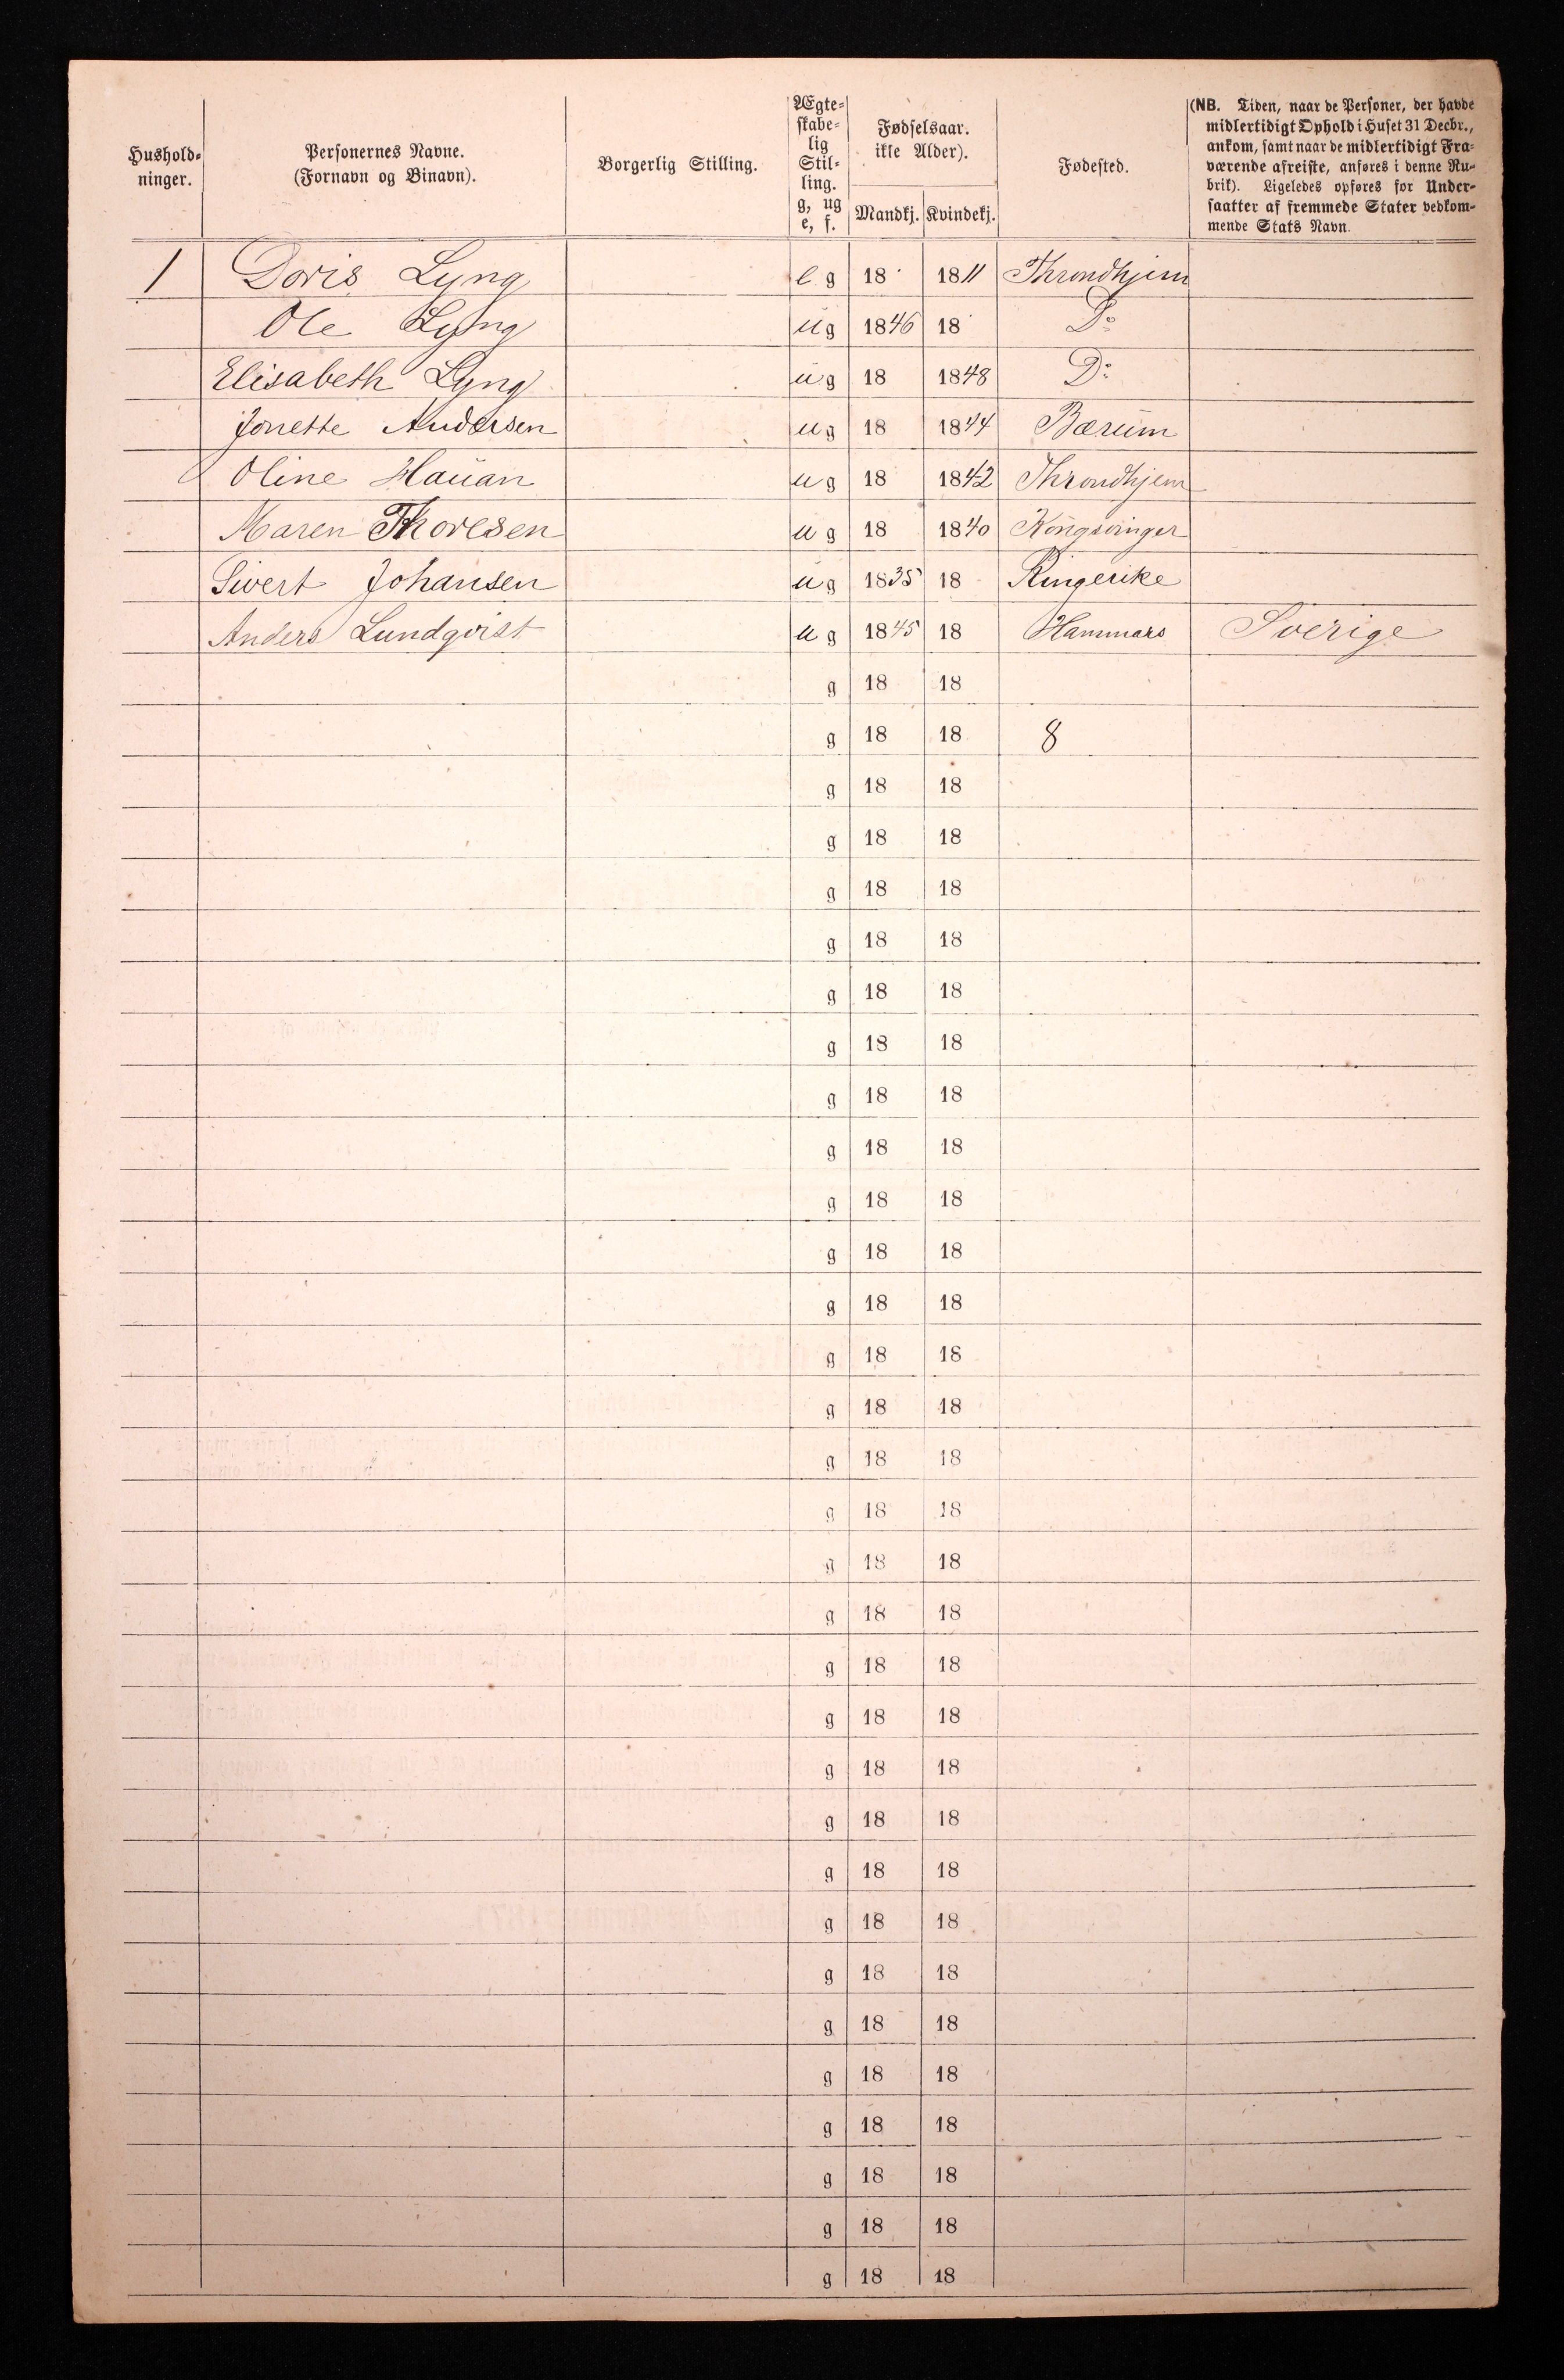 Hushold-
ninger.
Personernes Navne.
(Fornavn og Binavn).
Borgerlig Stilling.
Ægte-
skabe-
lig
Stil-
ling.
g, ug
e, f.
Fødselsaar.
ikke Alder).
Mandkj. Kvindekj.
Fødested.
(NB. Tiden, naar de Personer, der havde
midlertidigt Ophold i Huset 31 Decbr.,
ankom, samt naar de midlertidigt Fra-
værende afreiste, anføres i denne Ru-
brik). Ligeledes opføres for Under-
saatter af fremmede Stater vedkom-
mende Stats Navn.
1 Doris Lyng e g 18 1811 Throndhjem
Ole Lyng ug 1846 18 Do
Elisabeth Lyng ug 18 1848 Do
Jonette Andersen ug 18 1844 Bærum
Oline Hauan ug 18 1842 Throndhjem
Maren Thoresen ug 18 1840 Kongsvinger
Sivert Johansen ug 1835 18 Ringerike
Anders Lundqvist ug 1845 18 Hammars Sverige
g 18 18
g 18 18 8
g 18 18
g 18 18
g 18 18
g 18 18
g 18 18
g 18 18
g 18 18
g 18 18
g 18 18
g 18 18
g 18 18
g 18 18
g 18 18
g 18 18
g 18 18
g 18 18
g 18 18
g 18 18
g 18 18
g 18 18
g 18 18
g 18 18
g 18 18
g 18 18
g 18 18
g 18 18
g 18 18
g 18 18
g 18 18
g 18 18